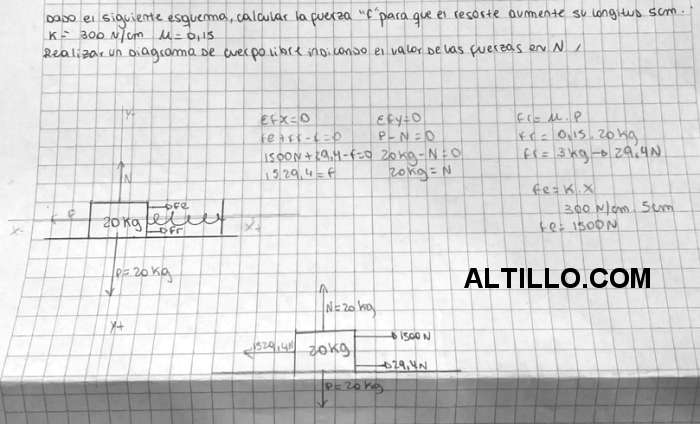 Dado el siguiente esquema, calcular la fuerza "F" para que el resorte aumente su longitud 5cm.
K = 300 N/cm μ = 0,15
Realizar un Diagrama de cuerpo libre indicando el valor de las fuerzas en N
Y-
N
F
20Kg
Fe
Fr
X-
X+
P=20Kg
Y+
EFX=0
Fe+Fr-F=0
1500N+29,4-F=0
1529,4=F
EFY=0
P-N=0
20Kg-N=0
20Kg=N
Fr= μ.P
Fr= 0,15.20Kg
Fr= 3Kg→29,4N
Fe=K.X
300 N/cm. 5cm
Fe= 1500N
ALTILLO.COM
N=20Kg
1529,4N
20Kg
1500N
29,4N
P=20Kg